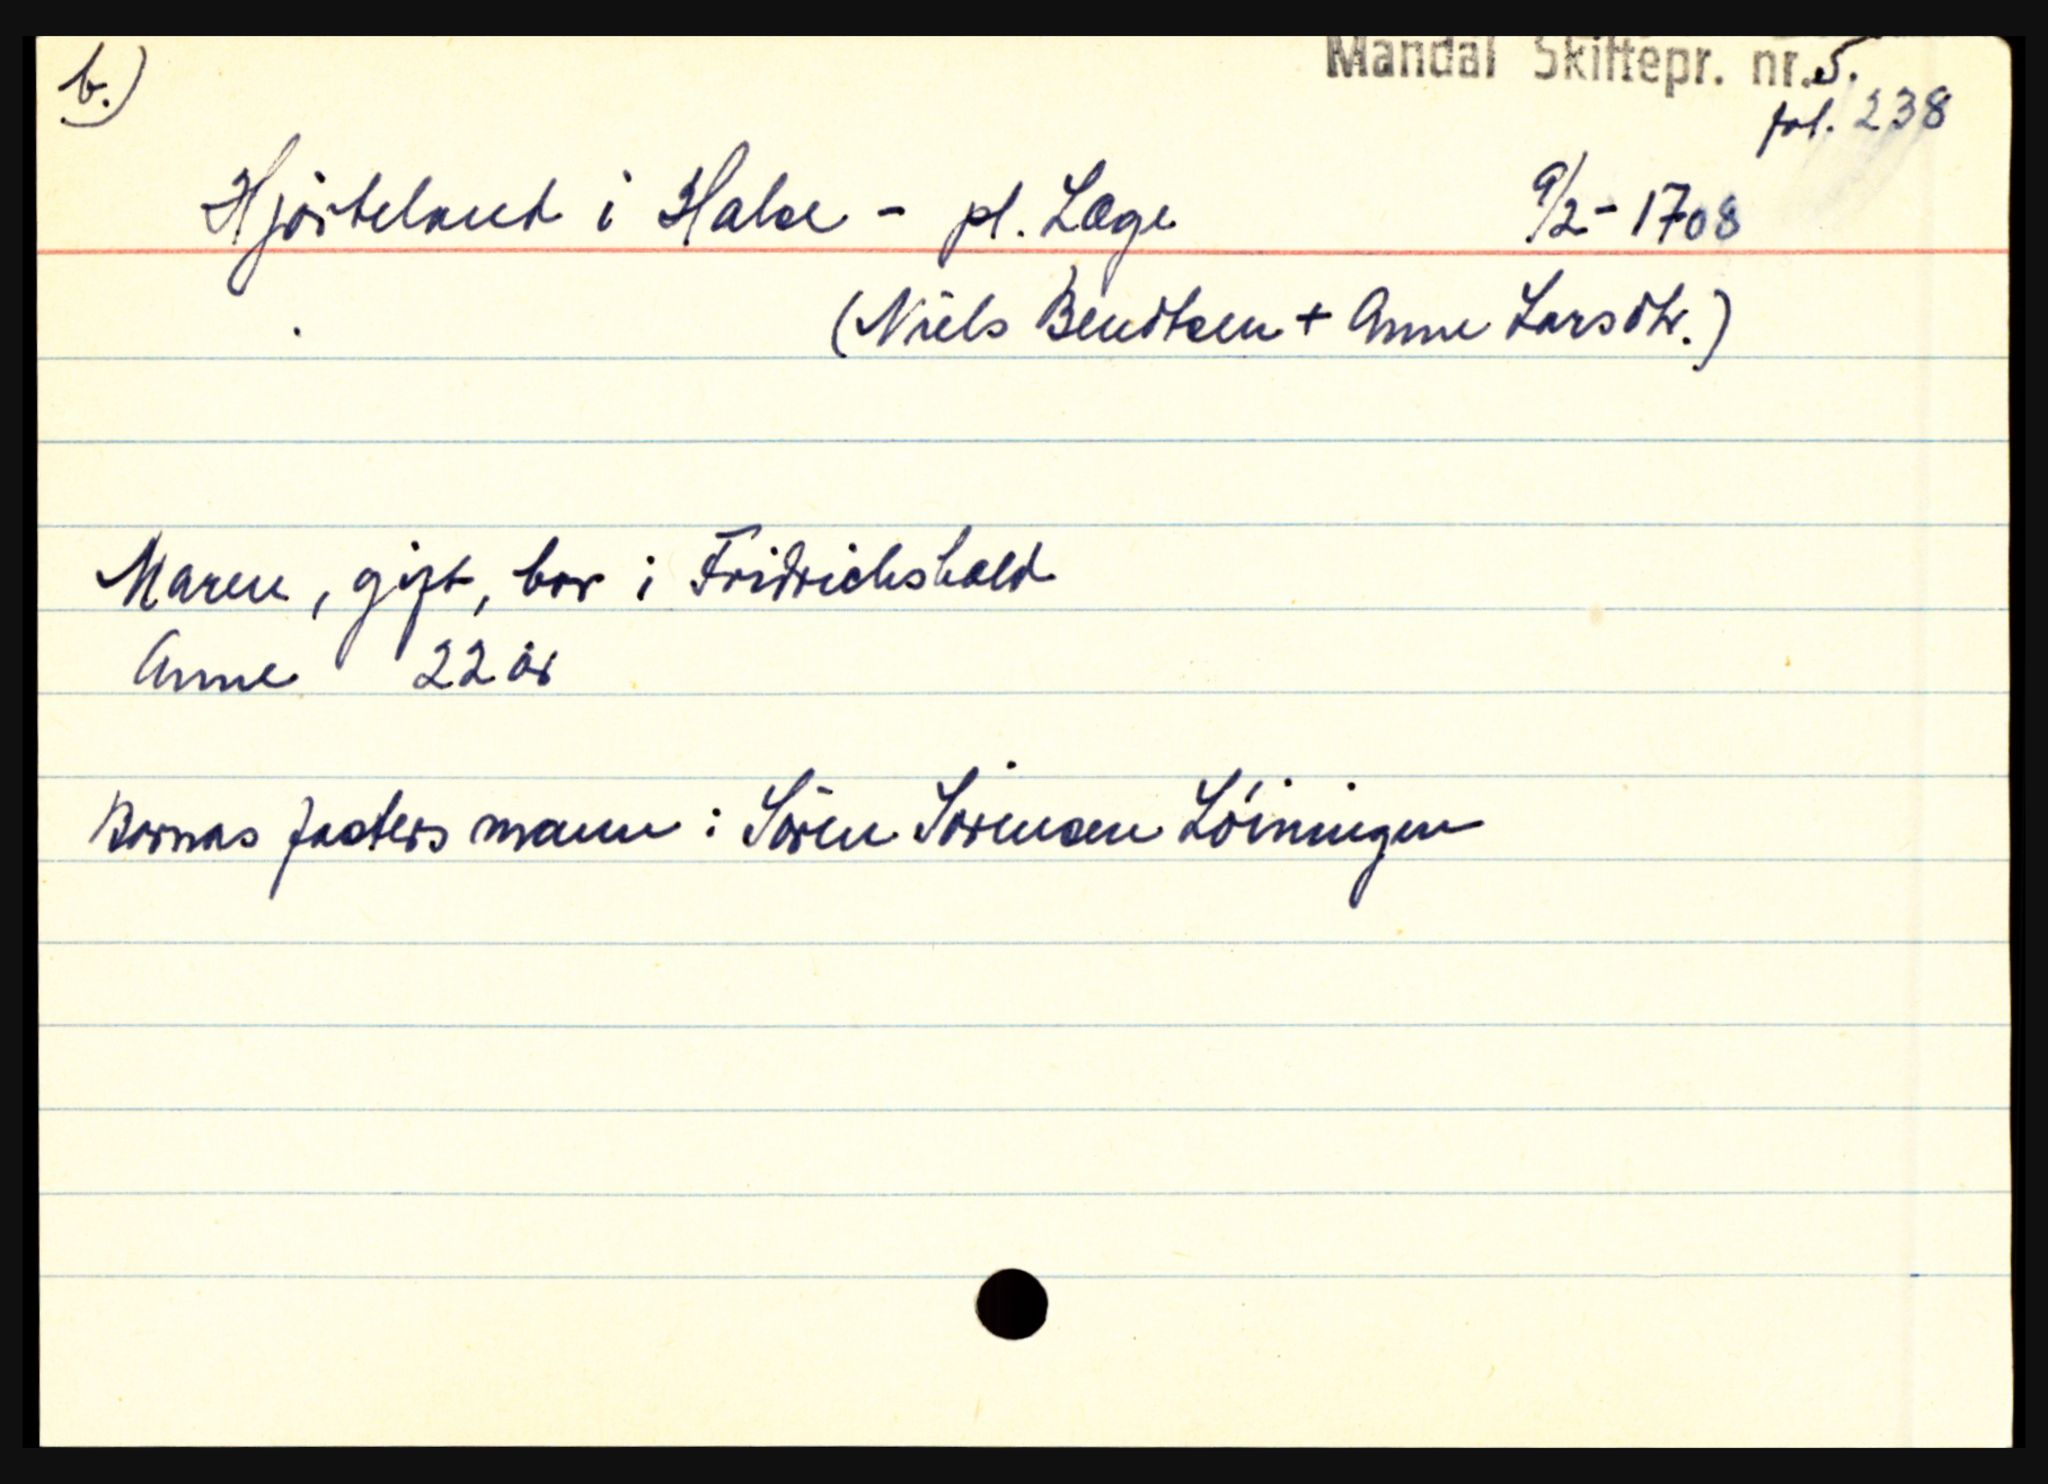 b.)
Mandal Skiftepr. nr. 5.
fol. 238
Hjörteland i Halse - pl. Lage 9/2-1708
(Niels Bendtsen + Anne Larsdtr.)
Maren, gift, bor i Fridrichshald
Anne 22 år
Bornas fasters mann: Sören Sörensen Löiningen